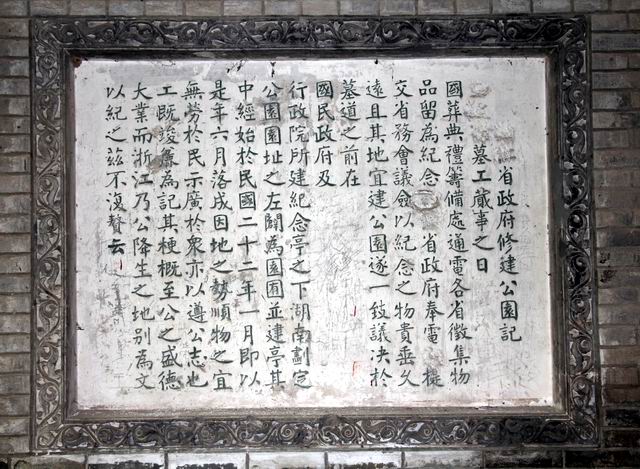 省政府修建公園記
墓工蕆事之日
國葬典禮籌備處通電各省徵集物
品留為紀念 省政府奉電 提
交省務會議僉以紀念之物貴垂久
遠且其地宜建公園遂一致議決於
墓道之前在
國民政府及
行政院所建紀念亭之下湖南劃定
公園園址之左闢為園囿並建亭其
中經始於民國二十二年一月即以
是年六月落成因地之勢順物之宜
無勞於民示廣於眾亦以遵公志也
工既竣爰為記其梗概至公之盛德
大業而浙江乃公降生之地別為文
以紀之茲不復贅云